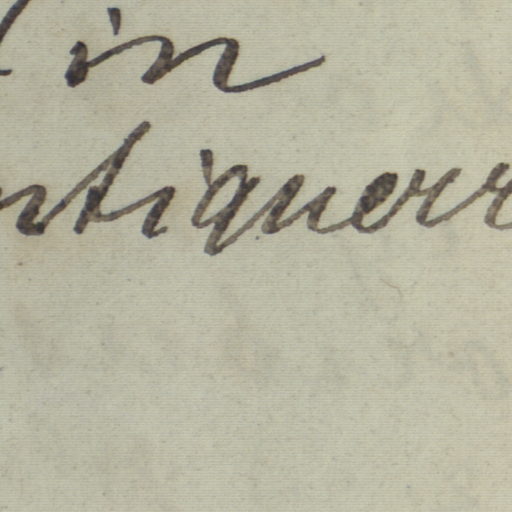 in
ntiquerr